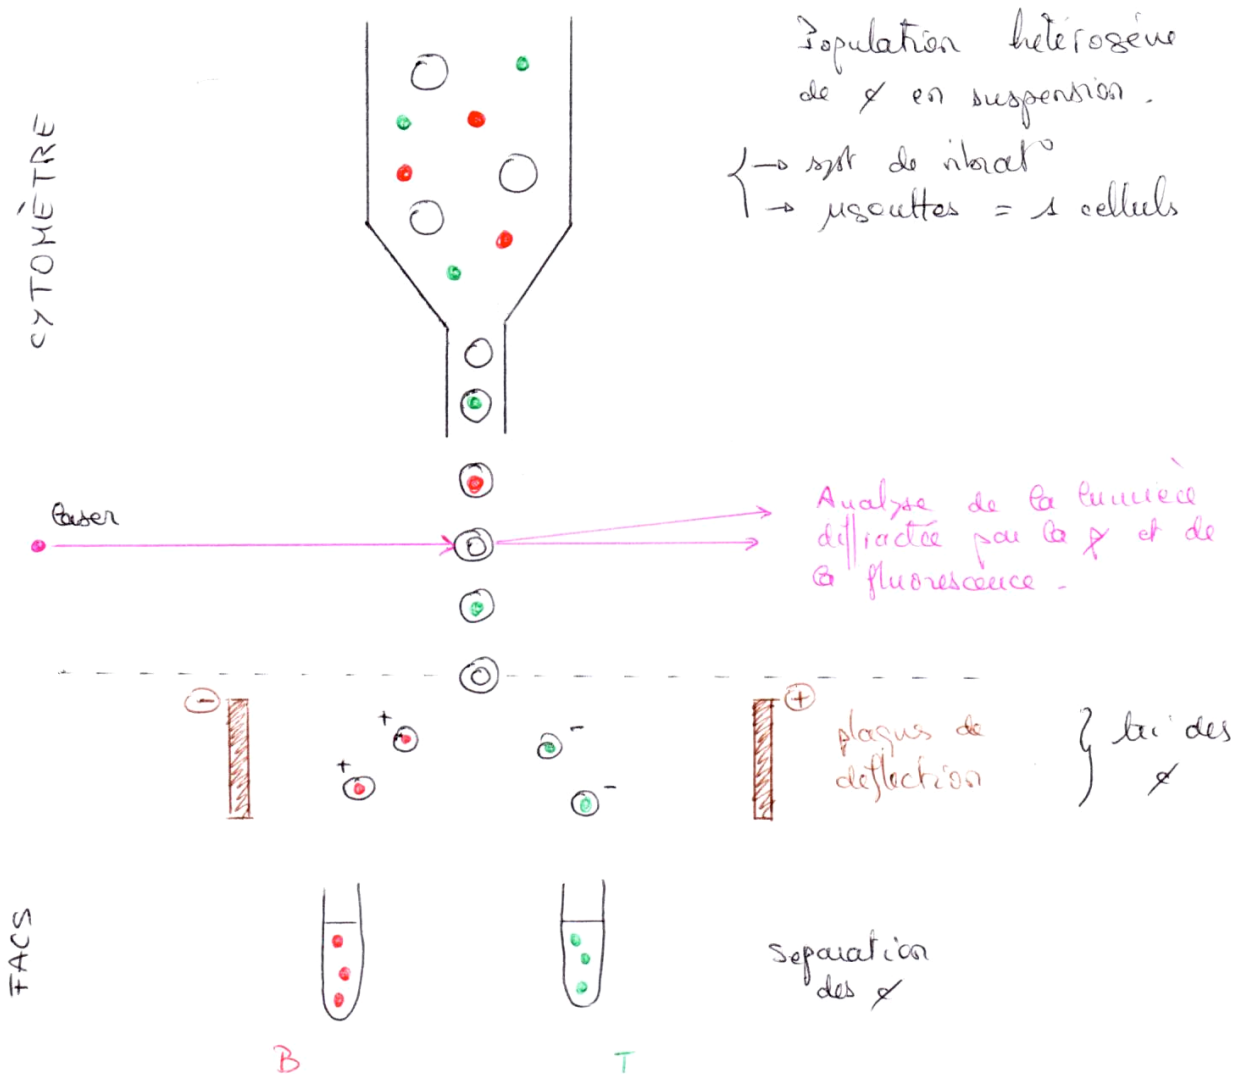 CYTOMÈTRE
Population hétérogène
de ȼ en suspension.
→ syst de vibrat°
→ µgouttes = 1 cellule
laser
Analyse de la lumière
diffractée par la ȼ et de
la fluorescence.
-
+
plaques de
déflection
tri des
ȼ
+
+
-
-
FACS
Séparation
des ȼ
B
T